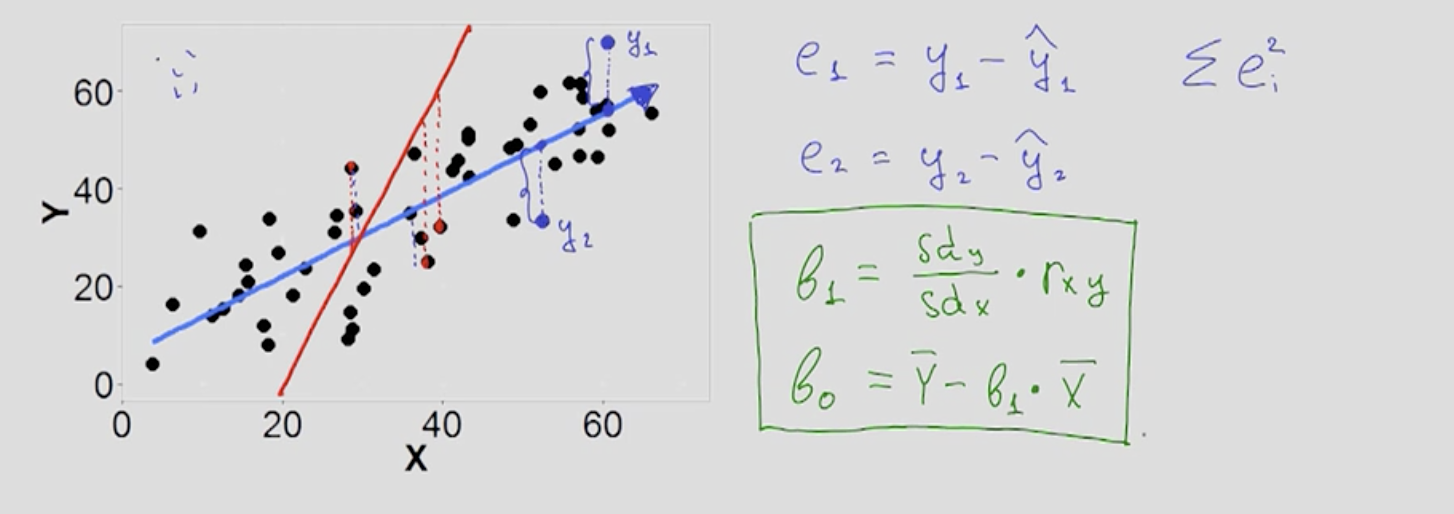 Y
60
40
20
0
0 20 40 60
X
y₁
y₂
e₁ = y₁ - ŷ₁
∑ eᵢ²
e₂ = y₂ - ŷ₂
b₁ = sdy / sdx · rxy
b₀ = Ȳ - b₁ · X̄